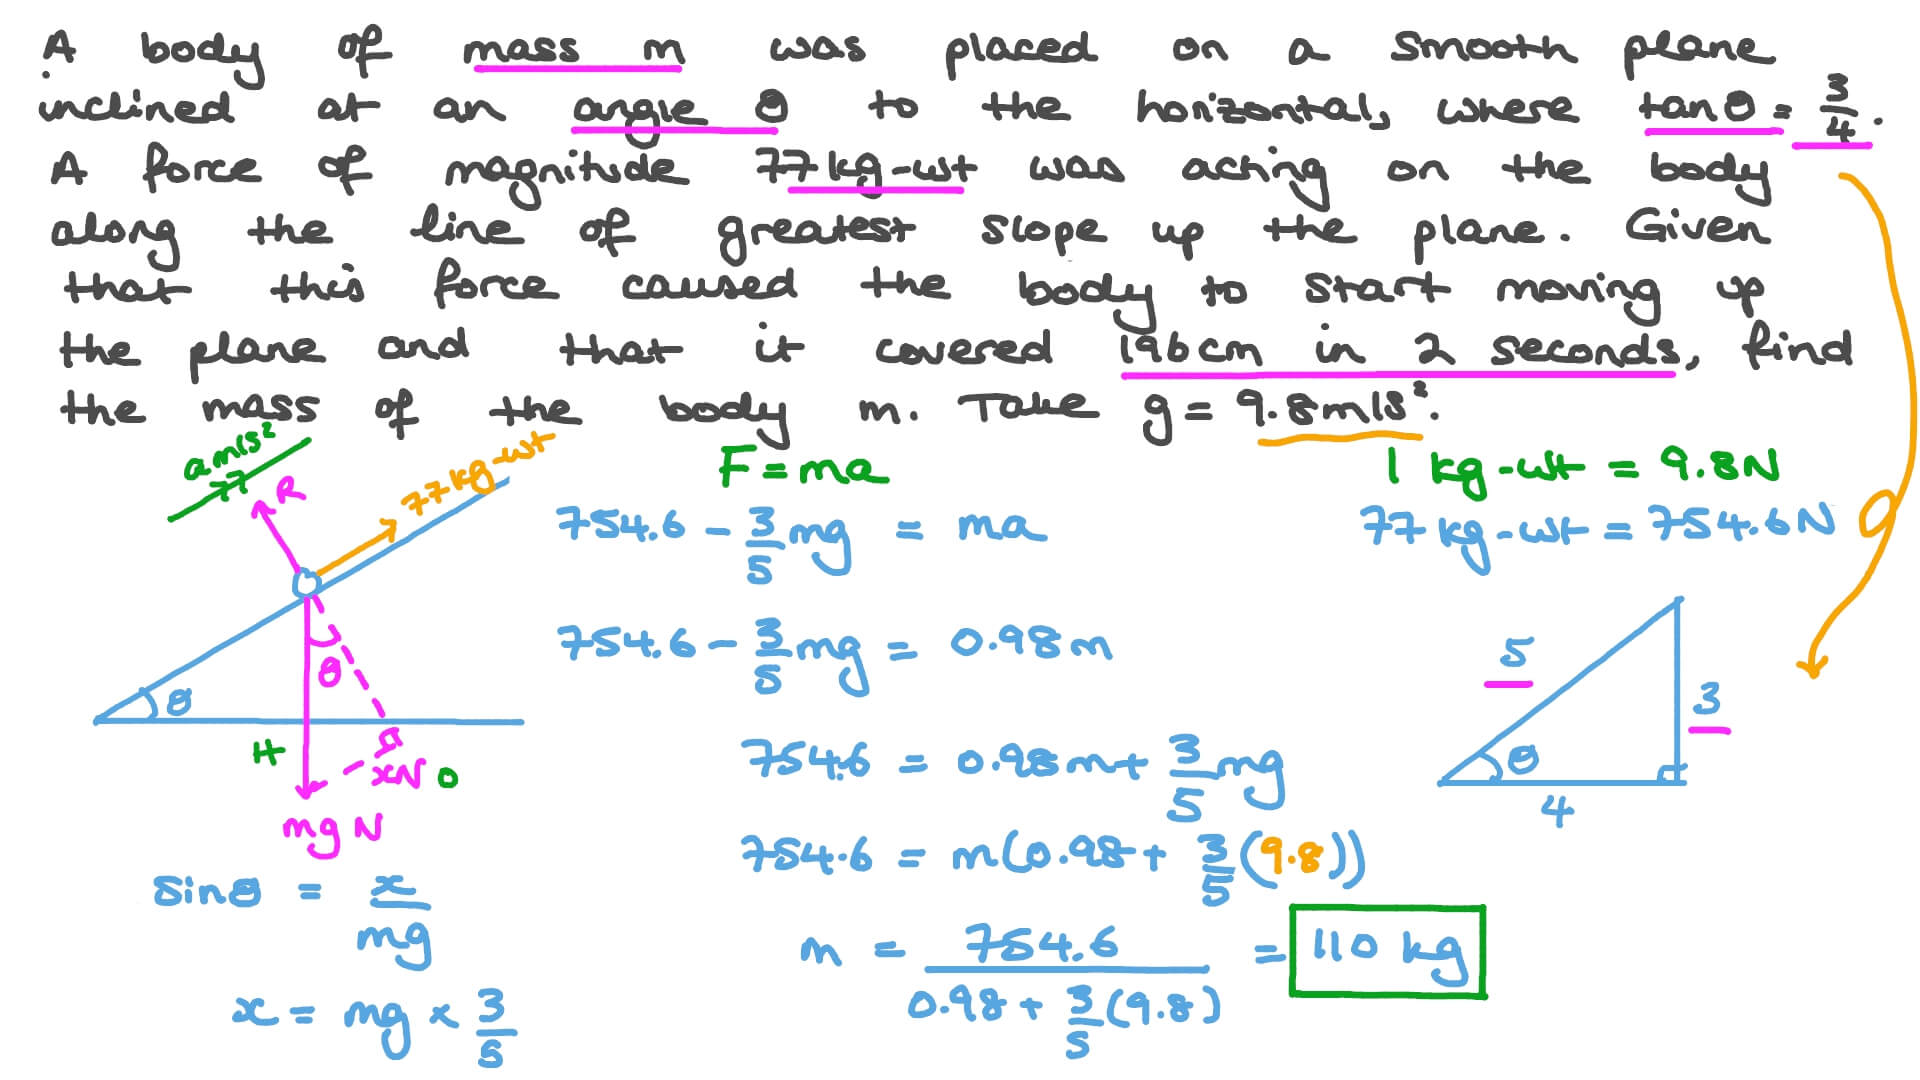 A body of mass m was placed on a smooth plane
inclined at an angle θ to the horizontal, where tan θ = 3/4.
A force of magnitude 77 kg-wt was acting on the body
along the line of greatest slope up the plane. Given
that this force caused the body to start moving up
the plane and that it covered 196 cm in 2 seconds, find
the mass of the body m. Take g = 9.8 m/s².
a m/s²
77
R
77 kg-wt
θ
θ
H
xN
O
mg N
sin θ = x/mg
x = mg × 3/5
F = ma
754.6 - 3/5 mg = ma
754.6 - 3/5 mg = 0.98m
754.6 = 0.98m + 3/5 mg
754.6 = m(0.98 + 3/5 (9.8))
m = 754.6/(0.98 + 3/5 (9.8)) = 110 kg
1 kg-wt = 9.8N
77 kg-wt = 754.6N
5
3
θ
4